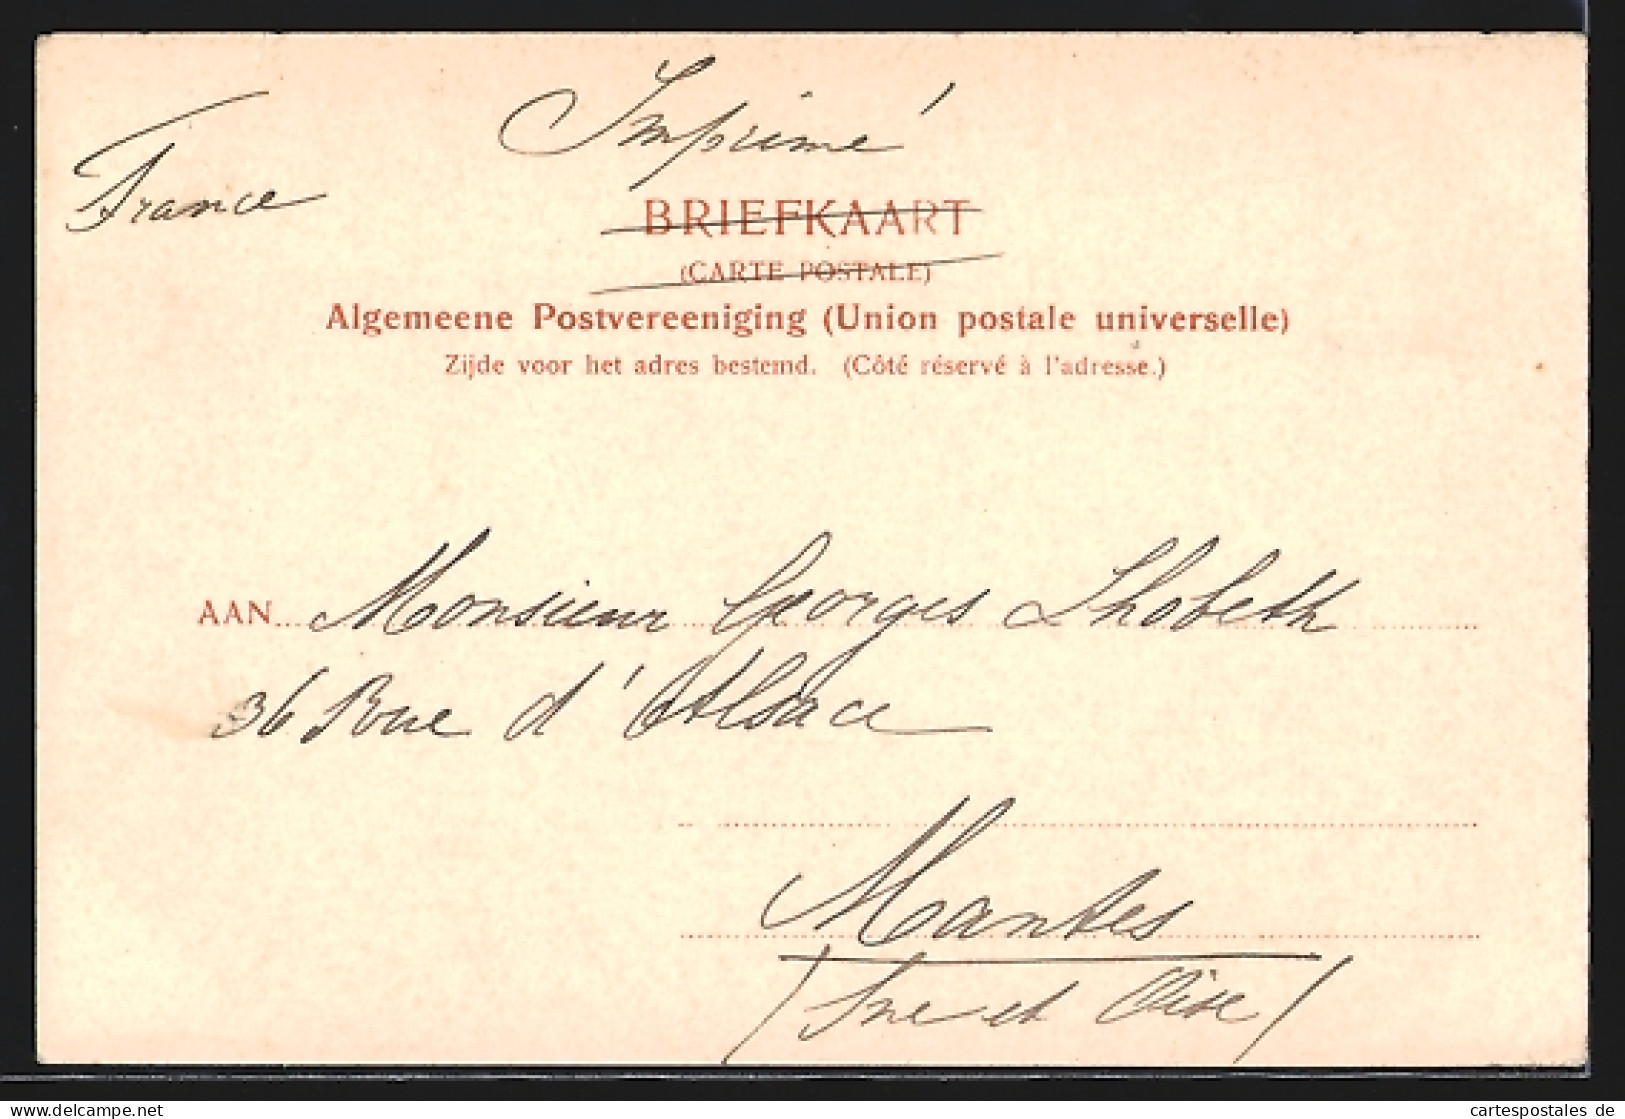 Imprimé
France
BRIEFKAART
(CARTE POSTALE)
Algemeene Postvereeniging (Union postale universelle)
Zijde voor het adres bestemd. (Côté réservé à l'adresse.)
AAN Monsieur Georges Lhobeth
36 Rue d'Alsace
Mantes
(Sne et Oise)
cartespostales de